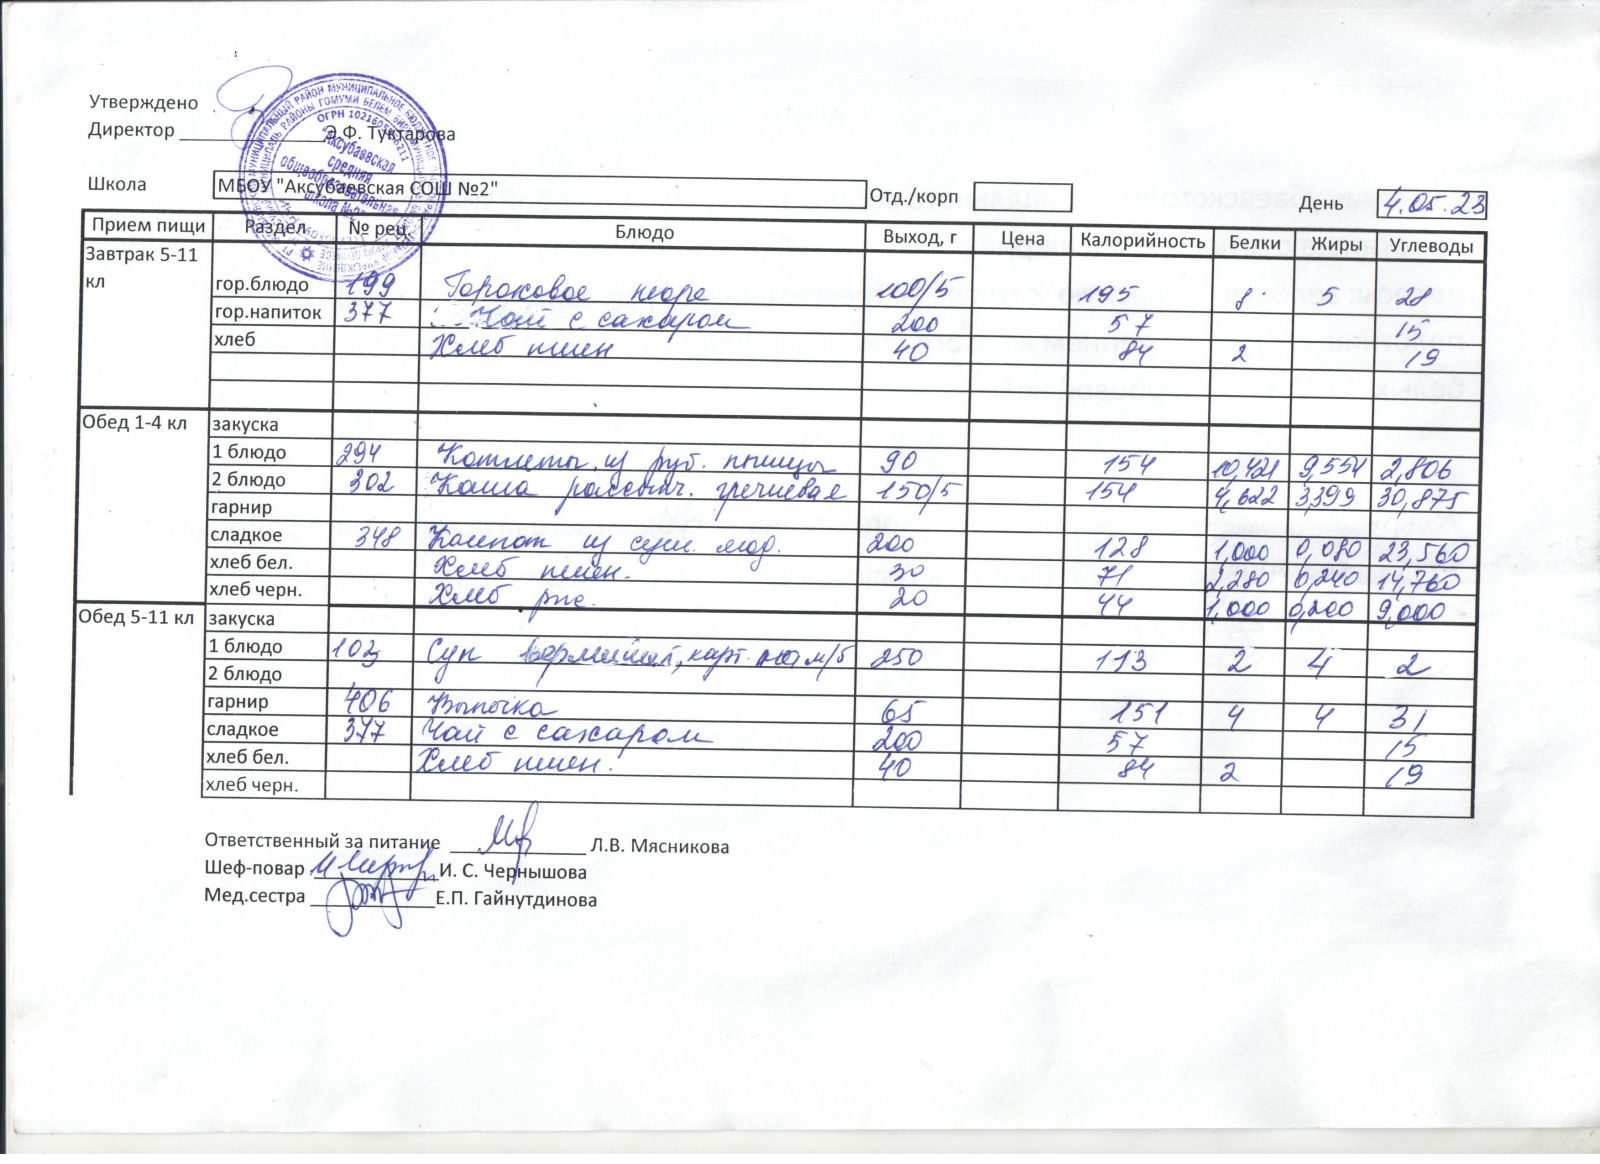 Утверждено
Директор ______________ Э.Ф. Туктарова
ОГРН
"Аксубаевская
средняя
общеобразовательная
школа №2"
Школа МБОУ "Аксубаевская СОШ №2" Отд./корп День 4.05.23
Прием пищи Раздел № рец. Блюдо Выход, г Цена Калорийность Белки Жиры Углеводы
Завтрак 5-11
кл
гор.блюдо 199 Гороховое пюре 100/5 195 8 5 28
гор.напиток 377 Чай с сахаром 200 57 15
хлеб Хлеб пшен 40 84 2 19
Обед 1-4 кл закуска
1 блюдо 294 Котлеты из руб. птицы 90 154 10,421 9,554 2,806
2 блюдо 302 Каша рассыпч. гречневая 150/5 154 4,622 3,399 30,875
гарнир
сладкое 348 Компот из суш. плод. 200 128 1,000 0,080 23,560
хлеб бел. Хлеб пшен. 30 71 2,280 0,240 14,760
хлеб черн. Хлеб рж. 20 44 1,000 0,200 9,000
Обед 5-11 кл закуска
1 блюдо 103 Суп карт. на м/б 250 113 2 4 2
2 блюдо
гарнир 406 Выпечка 65 151 4 4 31
сладкое 377 Чай с сахаром 200 57 15
хлеб бел. Хлеб пшен. 40 84 2 19
хлеб черн.
Ответственный за питание ______________ Л.В. Мясникова
Шеф-повар ______________ И. С. Чернышова
Мед.сестра ______________ Е.П. Гайнутдинова